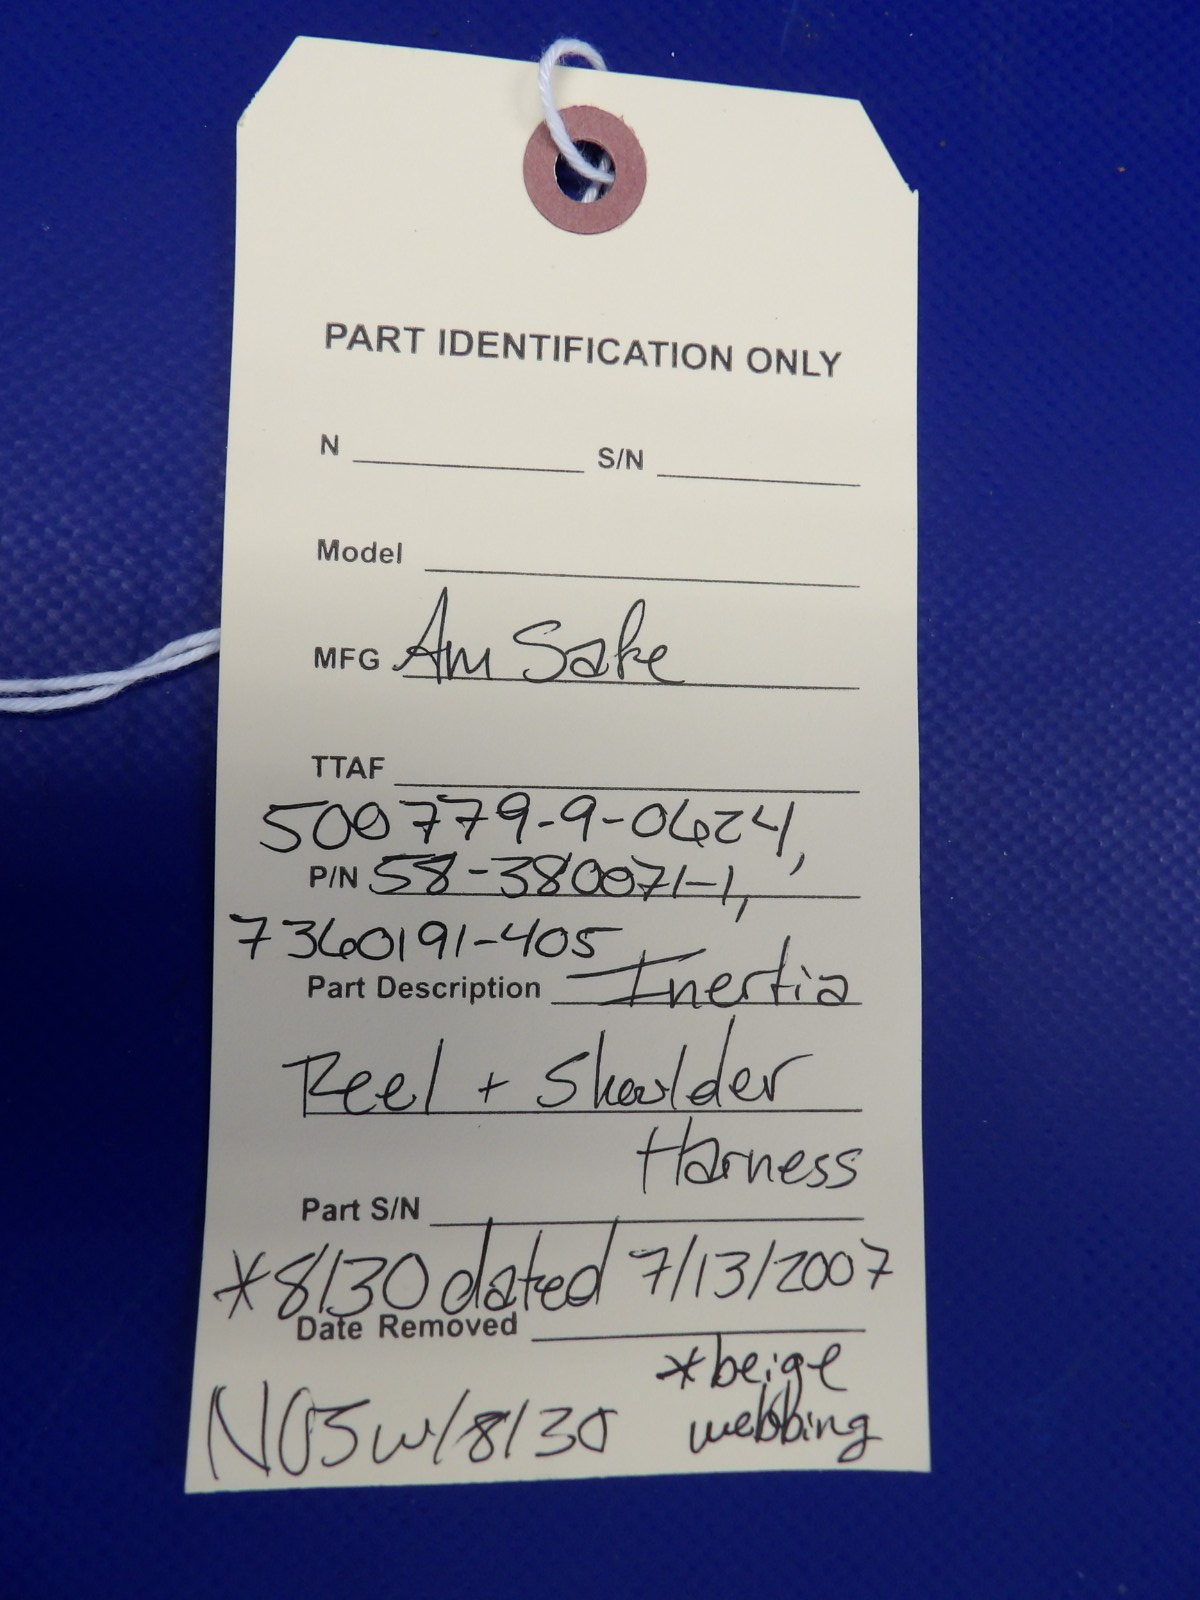 PART IDENTIFICATION ONLY
N S/N
Model
MFG Am Safe
TTAF
500779-9-0624,
P/N 58-380071-1,
7360191-405
Part Description Inertia
Reel + Shoulder
Harness
Part S/N
*8130 dated 7/13/2007
Date Removed
*beige
webbing
NOS w/8130